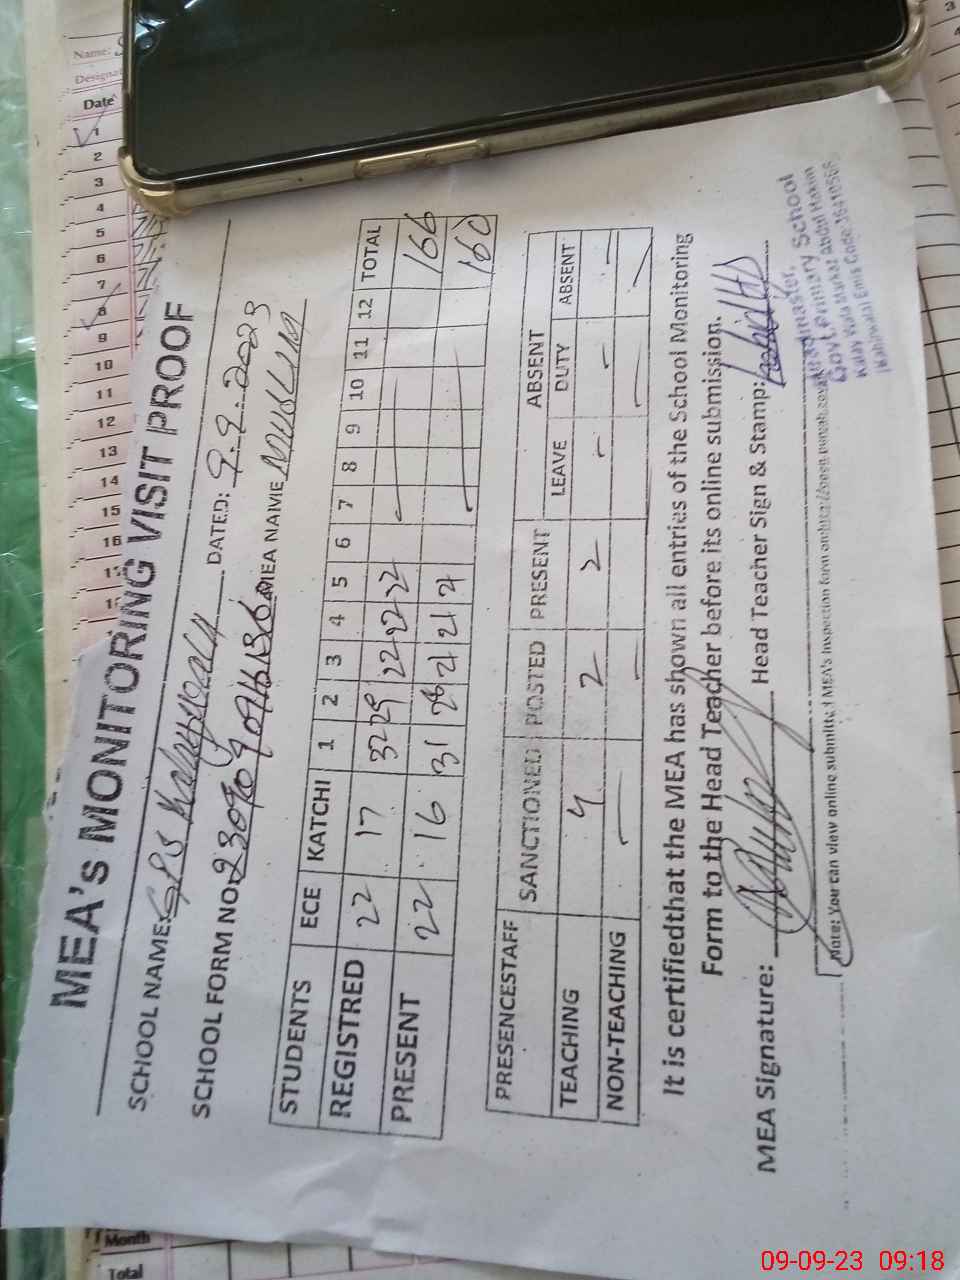 MEA's MONITORING VISIT PROOF
SCHOOL NAME: GPS DATED: 9.9.2023
SCHOOL FORM NO. MEA NAME
STUDENTS ECE KATCHI 1 2 3 4 5 6 7 8 9 10 11 12 TOTAL
REGISTRED 22 17 32 29 22 22 22 166
PRESENT 22 16 31 28 21 21 21 160
PRESENCESTAFF SANCTIONED POSTED PRESENT LEAVE ABSENT DUTY ABSENT
TEACHING 4 2 2 - - -
NON-TEACHING
It is certifiedthat the MEA has shown all entries of the School Monitoring
Form to the Head Teacher before its online submission.
MEA Signature: Head Teacher Sign & Stamp:
Headmaster,
Govt, Primary School
Kalay Wala Markaz Abdul Hakim
Emis Code
Note: You can view online submitted MEA's Inspection form on
Name:
Date
1
2
3
4
5
6
7
8
9
10
11
12
13
14
15
16
Month
Total
09-09-23 09:18